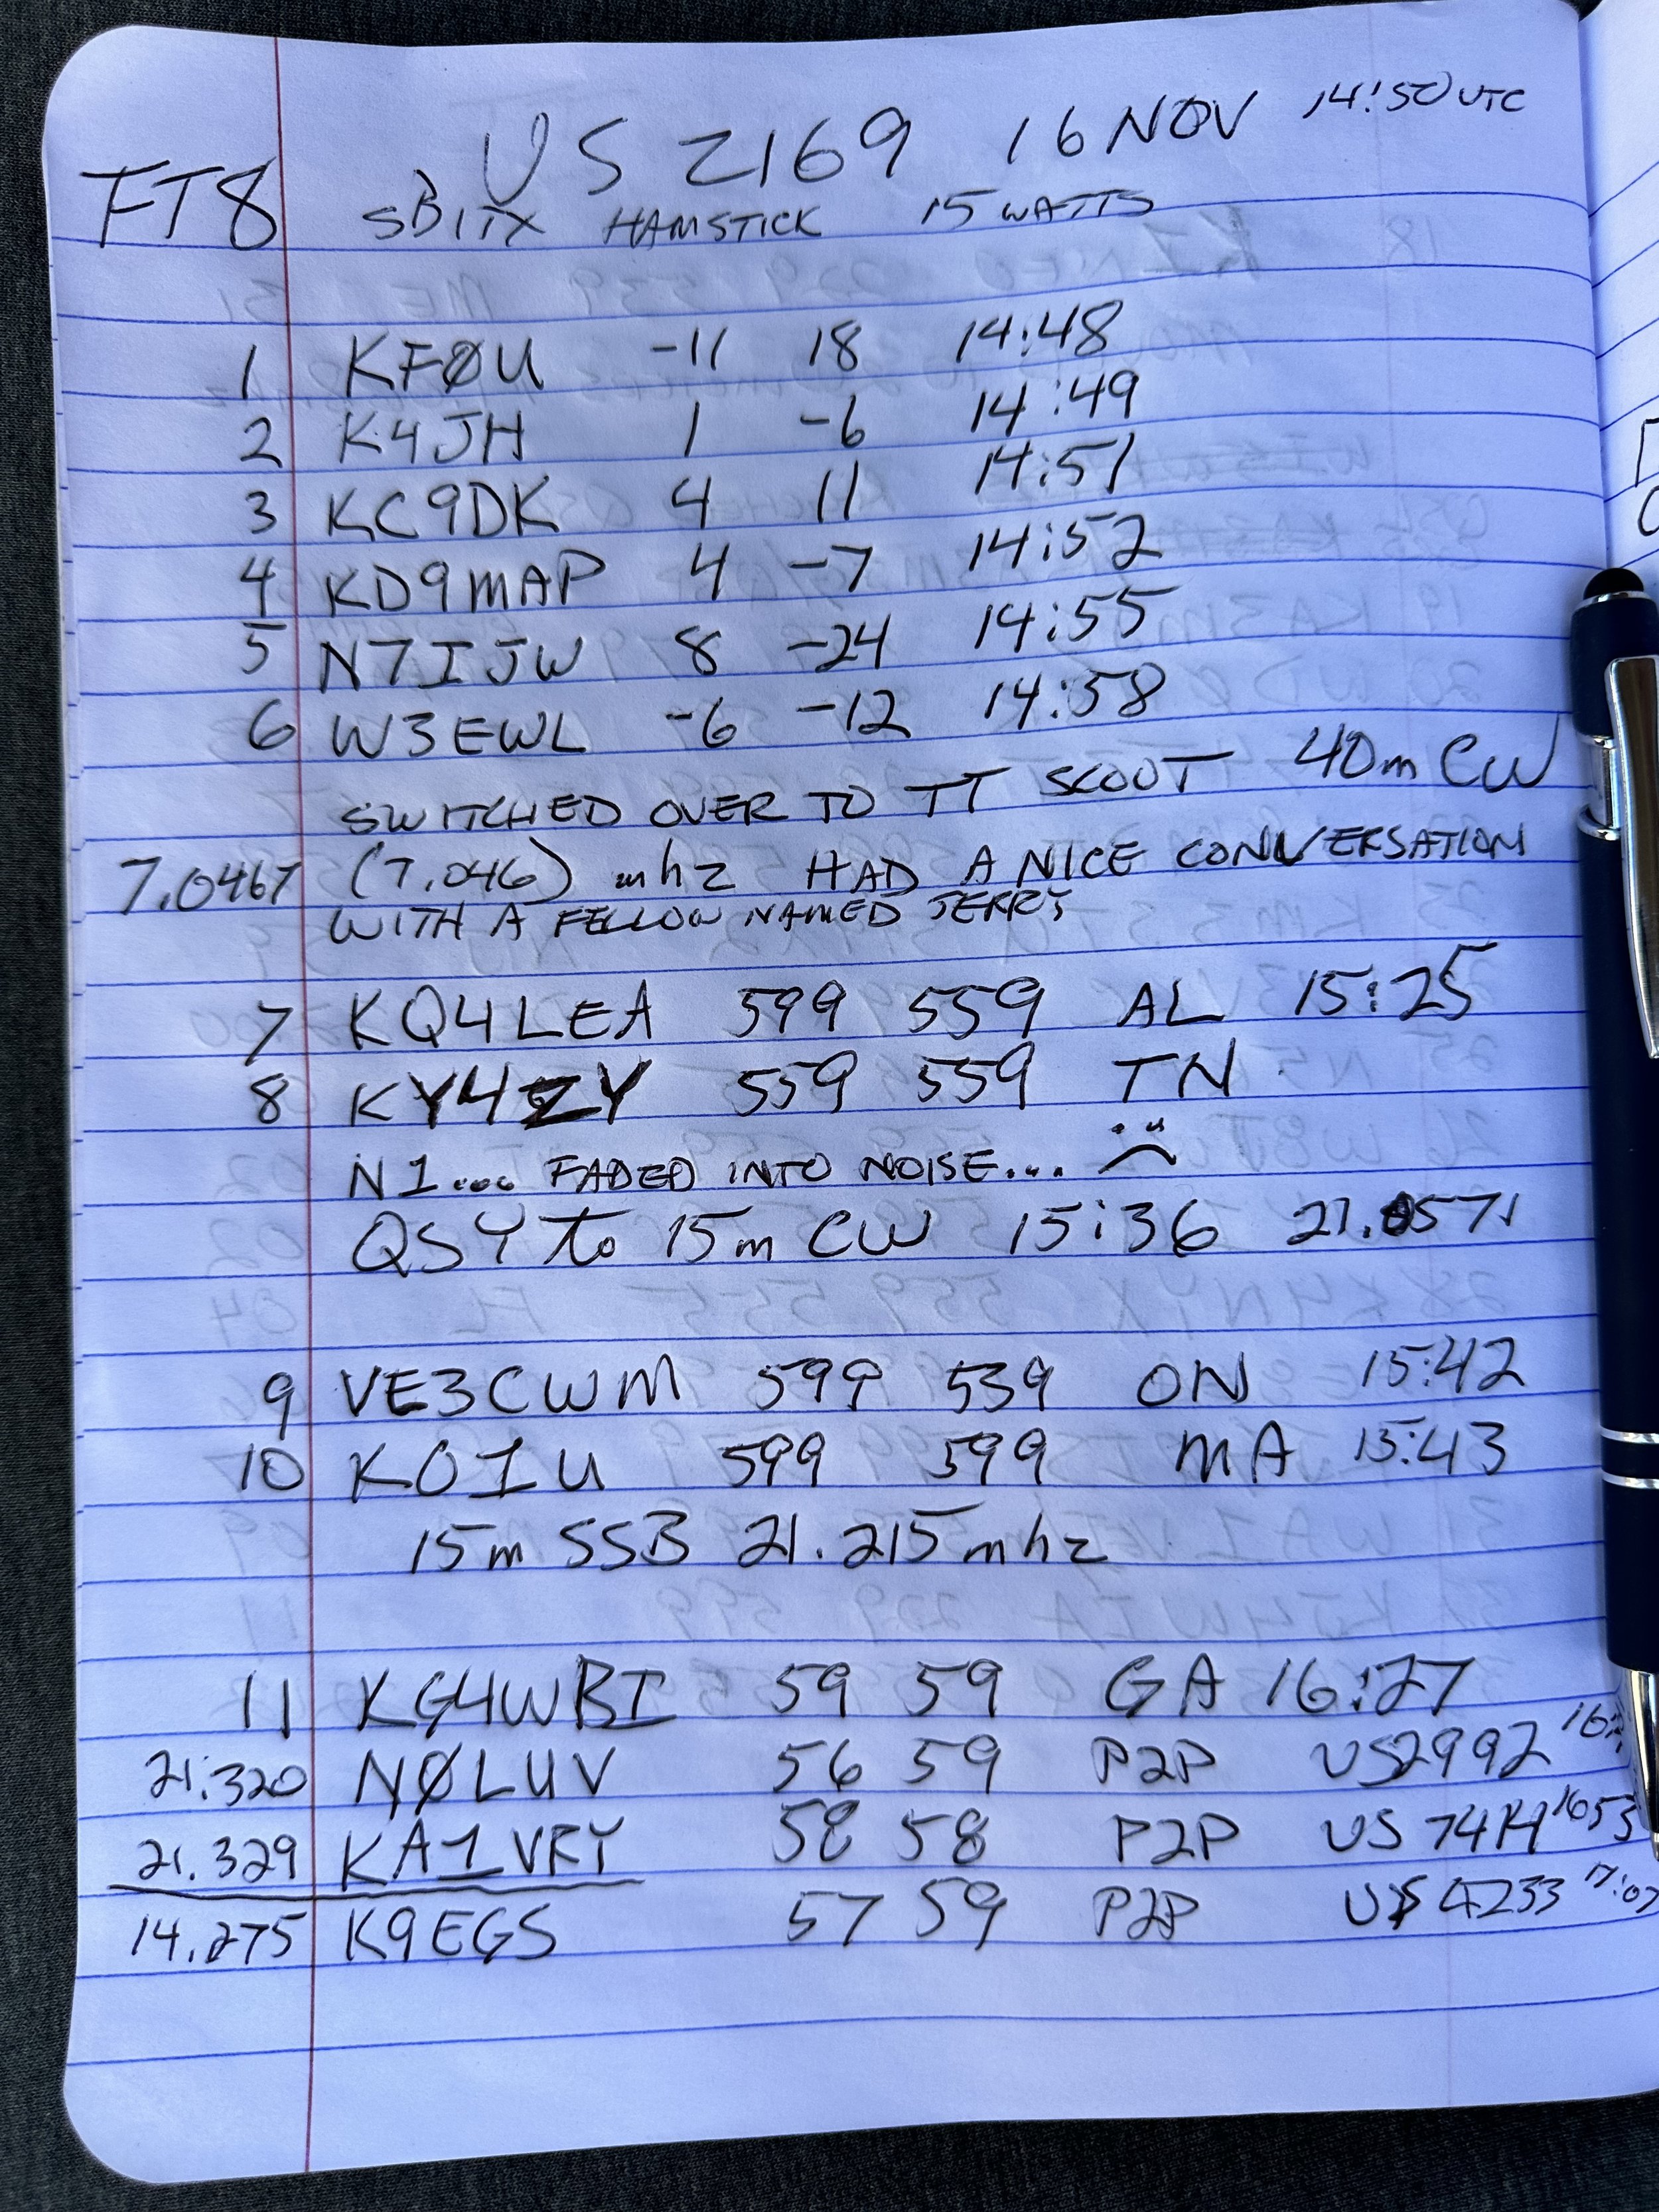 US 2169 16 NOV 14:50 UTC
FT8 SBITX HAMSTICK 15 WATTS
1 KFØU -11 18 14:48
2 K4JH 1 -6 14:49
3 KC9DK 4 11 14:51
4 KD9MAP 4 -7 14:52
5 N7IJW 8 -24 14:55
6 W3EWL -6 -12 14:58
SWITCHED OVER TO TT SCOUT 40m CW
7.0467 (7.046) mhz HAD A NICE CONVERSATION
WITH A FELLOW NAMED JERRY
7 KQ4LEA 599 559 AL 15:25
8 KY4ZY 559 559 TN
N1... FADED INTO NOISE...
QSY to 15m CW 15:36 21.0571
9 VE3CWM 599 539 ON 15:42
10 KO1U 599 599 MA 15:43
15m SSB 21.215 mhz
11 KG4WBI 59 59 GA 16:27
21.320 NØLUV 56 59 P2P US2992
21.329 KA1VRY 58 58 P2P US 1653
14.275 K9EGS 57 59 P2P US 4233